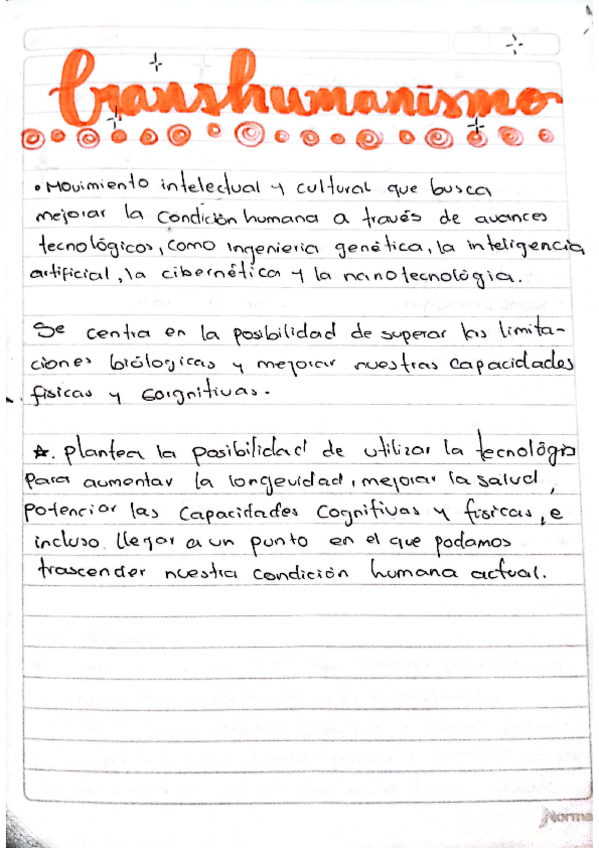 transhumanismo
• Movimiento intelectual y cultural que busca
mejorar la condición humana a través de avances
tecnológicos, como ingenieria genética, la inteligencia
artificial, la cibernética y la nanotecnológia.
Se centra en la posibilidad de superar las limita-
ciones biólogicas y mejorar nuestras capacidades
fisicas y corgnitivas.
☆. plantea la posibilidad de utilizar la tecnológia
para aumentar la longevidad, mejorar la salud,
potenciar las capacidades cognitivas y físicas, e
incluso llegar a un punto en el que podamos
trascender nuestra condición humana actual.
Norma